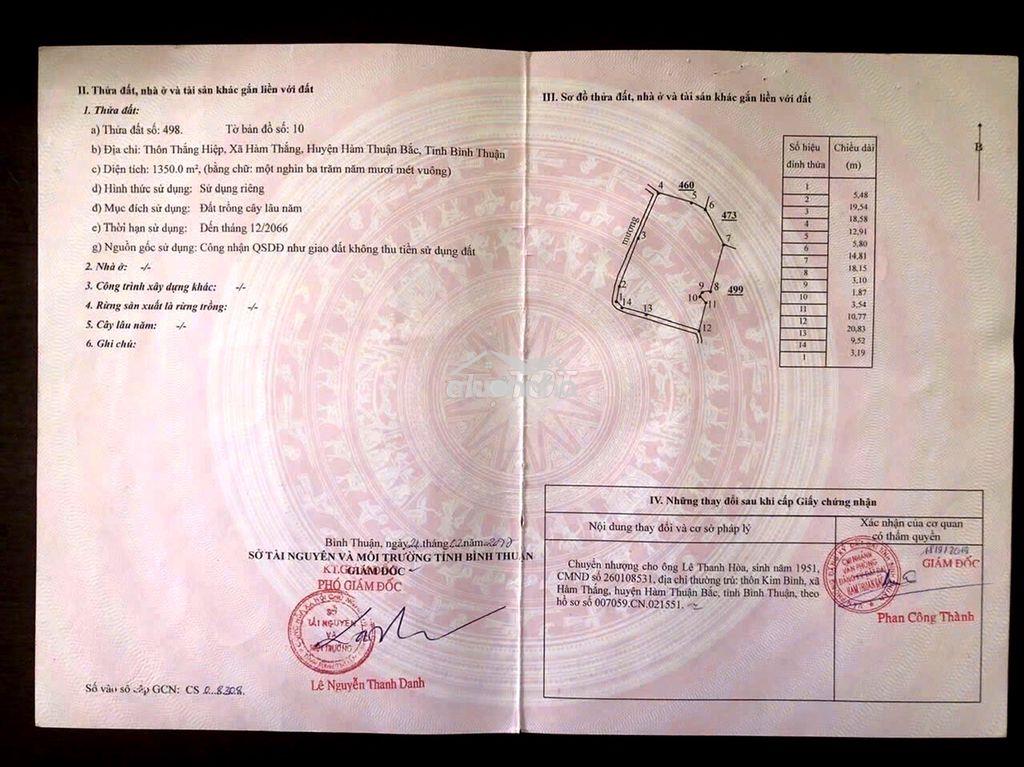 II. Thửa đất, nhà ở và tài sản khác gắn liền với đất
1. Thửa đất:
a) Thửa đất số: 498. Tờ bản đồ số: 10
b) Địa chỉ: Thôn Thắng Hiệp, Xã Hàm Thắng, Huyện Hàm Thuận Bắc, Tỉnh Bình Thuận
c) Diện tích: 1350.0 m², (bằng chữ: một nghìn ba trăm năm mươi mét vuông)
d) Hình thức sử dụng: Sử dụng riêng
đ) Mục đích sử dụng: Đất trồng cây lâu năm
e) Thời hạn sử dụng: Dến tháng 12/2066
g) Nguồn gốc sử dụng: Công nhận QSDĐ như giao đất không thu tiền sử dụng đất
2. Nhà ở: -/-
3. Công trình xây dựng khác: -/-
4. Rừng sản xuất là rừng trồng: -/-
5. Cây lâu năm: -/-
6. Ghi chú:
Bình Thuận, ngày tháng năm
SỞ TÀI NGUYÊN VÀ MÔI TRƯỜNG TỈNH BÌNH THUẬN
KT.GIÁM ĐỐC
PHÓ GIÁM ĐỐC
SỞ
TÀI NGUYÊN
VÀ
MÔI TRƯỜNG
Lê Nguyễn Thanh Danh
Số vào sổ cấp GCN: CS
III. Sơ đồ thửa đất, nhà ở và tài sản khác gắn liền với đất
B
4 460
5
6
473
7
mương
3
2
1
14
13
9 8
10
11
499
12
Số hiệu đỉnh thửa Chiều dài (m)
1
5,48
2
19,54
3
18,58
4
12,91
5
5,80
6
14,81
7
18,15
8
3,10
9
1,87
10
3,54
11
10,77
12
20,83
13
9,52
14
3,19
1
IV. Những thay đổi sau khi cấp Giấy chứng nhận
Nội dung thay đổi và cơ sở pháp lý
Xác nhận của cơ quan
có thẩm quyền
Chuyển nhượng cho ông Lê Thanh Hòa, sinh năm 1951,
CMND số 260108531, địa chỉ thường trú: thôn Kim Bình, xã
Hàm Thắng, huyện Hàm Thuận Bắc, tỉnh Bình Thuận, theo
hồ sơ số 007059.CN.021551.
GIÁM ĐỐC
CHI NHÁNH
VĂN PHÒNG
ĐĂNG KÝ ĐẤT ĐAI
HÀM THUẬN BẮC
Phan Công Thành